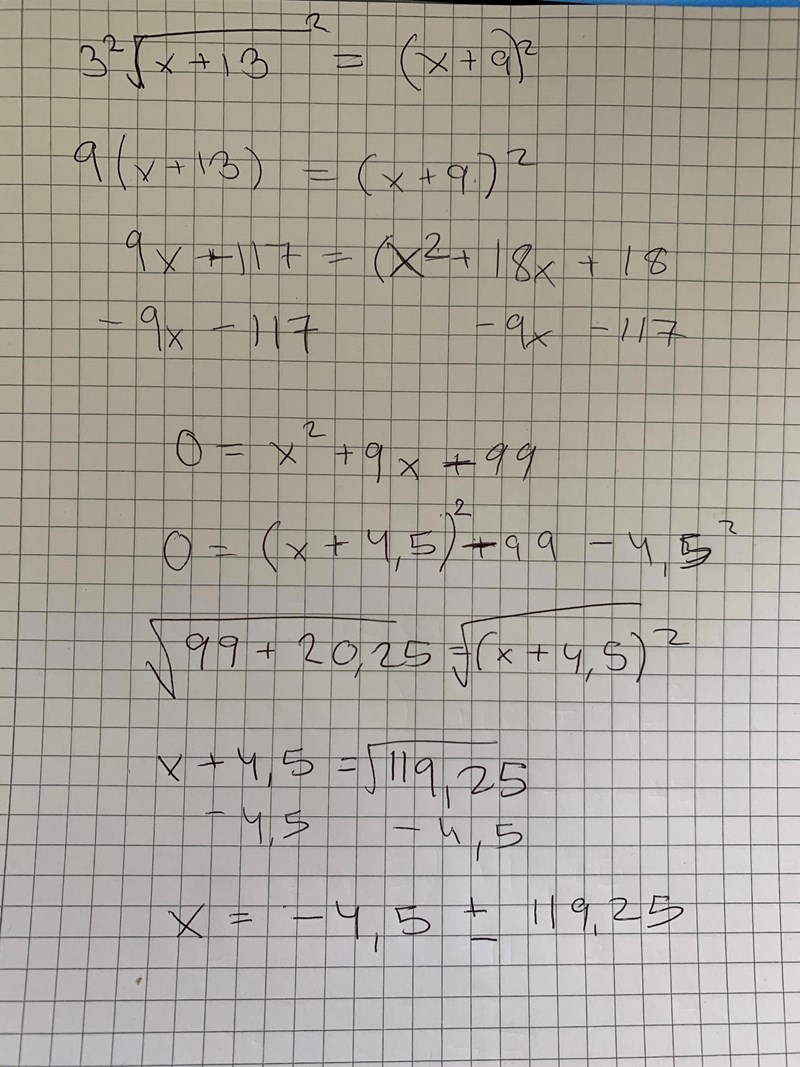 3²√(x+13)² = (x+9)²
9(x+13) = (x+9.)²
9x + 117 = (x² + 18x + 18
- 9x - 117 - 9x - 117
0 = x² + 9x - 99
0 = (x + 4,5)² - 99 - 4,5²
√99 + 20,25 = √(x + 4,5)²
x + 4,5 = √119,25
- 4,5 - 4,5
x = - 4,5 ± 119,25